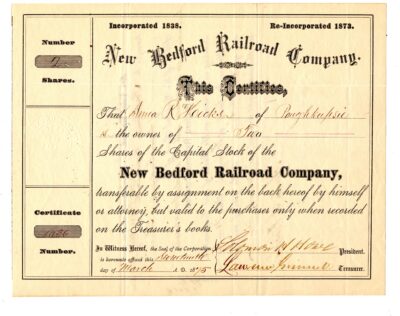 Incorporated 1838. Re-Incorporated 1873.
Number
2
Shares.
New Bedford Railroad Company.
This Certifies,
That Anna R. Hicks of Poughkeepsie
is the owner of Two
Shares of the Capital Stock of the
New Bedford Railroad Company,
transferable by assignment on the back hereof by himself
or attorney, but valid to the purchaser only when recorded
on the Treasurer's books.
Certificate
Number.
In Witness Hereof, the Seal of the Corporation
is hereunto affixed this
day of March A.D. 1875
President.
Treasurer.